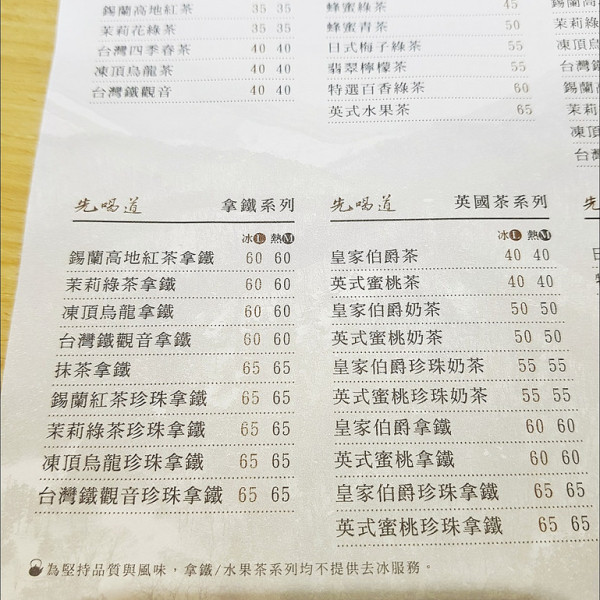 錫蘭高地紅茶 35 35
茉莉花綠茶 35 35
台灣四季春茶 40 40
凍頂烏龍茶 40 40
台灣鐵觀音 40 40
蜂蜜綠茶 45
蜂蜜青茶 50
日式梅子綠茶 55
翡翠檸檬茶 55
特選百香綠茶 60
英式水果茶 65
先喝道 拿鐵系列
冰L 熱M
錫蘭高地紅茶拿鐵 60 60
茉莉綠茶拿鐵 60 60
凍頂烏龍拿鐵 60 60
台灣鐵觀音拿鐵 60 60
抹茶拿鐵 65 65
錫蘭紅茶珍珠拿鐵 65 65
茉莉綠茶珍珠拿鐵 65 65
凍頂烏龍珍珠拿鐵 65 65
台灣鐵觀音珍珠拿鐵 65 65
先喝道 英國茶系列
冰L 熱M
皇家伯爵茶 40 40
英式蜜桃茶 40 40
皇家伯爵奶茶 50 50
英式蜜桃奶茶 50 50
皇家伯爵珍珠奶茶 55 55
英式蜜桃珍珠奶茶 55 55
皇家伯爵拿鐵 60 60
英式蜜桃拿鐵 60 60
皇家伯爵珍珠拿鐵 65 65
英式蜜桃珍珠拿鐵 65 65
為堅持品質與風味，拿鐵/水果茶系列均不提供去冰服務。
錫蘭高
茉莉綠
凍頂
台灣
錫蘭高
茉莉
凍頂
台灣
先